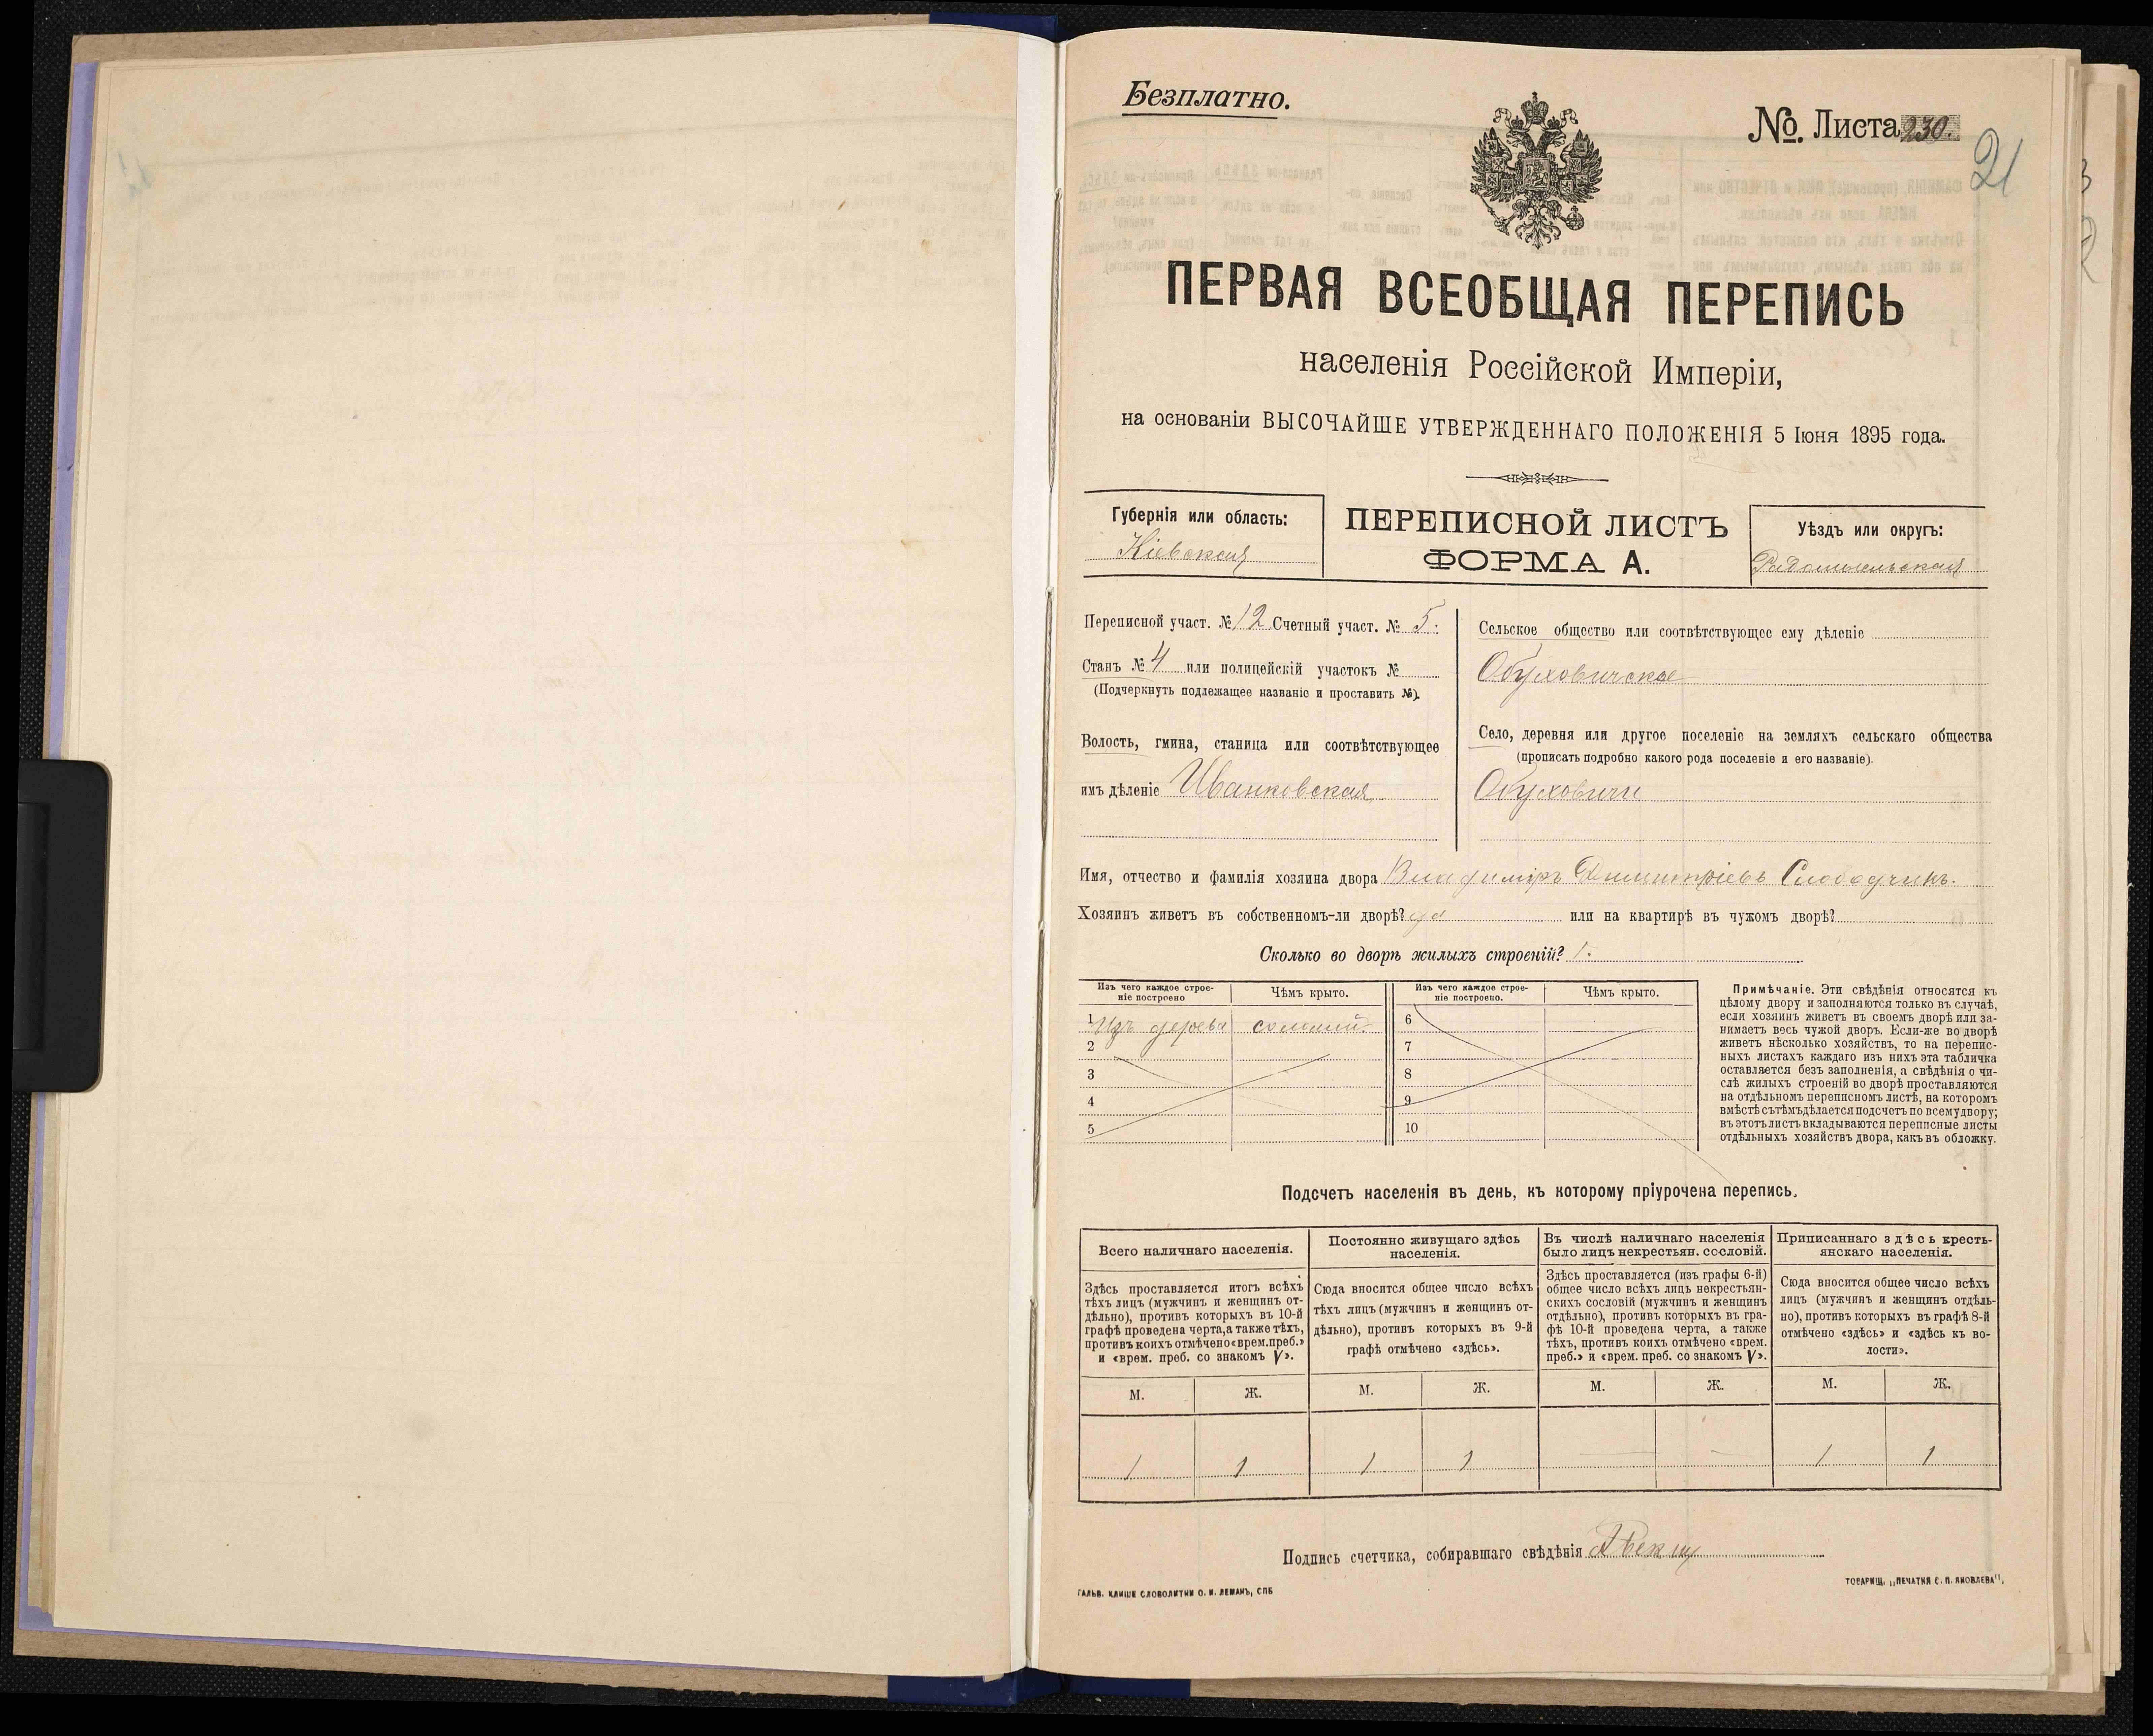 Безплатно.
№ Листа 230.
21
ПЕРВАЯ ВСЕОБЩАЯ ПЕРЕПИСЬ
населенія Россійской Имперіи,
на основаніи ВЫСОЧАЙШЕ УТВЕРЖДЕННАГО ПОЛОЖЕНІЯ 5 Іюня 1895 года.
Губернія или область:
Кіевская
ПЕРЕПИСНОЙ ЛИСТЪ
ФОРМА А.
Уѣздъ или округъ:
Радомысльскій
Переписной участ. № 12 Счетный участ. № 5.
Станъ № 4 или полицейскій участокъ №
(Подчеркнуть подлежащее названіе и проставить №).
Волость, гмина, станица или соотвѣтствующее
имъ дѣленіе Иванковская
Сельское общество или соотвѣтствующее ему дѣленіе
Обуховичское
Село, деревня или другое поселеніе на земляхъ сельскаго общества
(прописать подробно какого рода поселеніе и его названіе).
Обуховичи
Имя, отчество и фамилія хозяина двора Владиміръ Димитріевъ Слободчикъ.
Хозяинъ живетъ въ собственномъ-ли дворѣ? да или на квартирѣ въ чужомъ дворѣ?
Сколько во дворѣ жилыхъ строеній? 1.
Изъ чего каждое строе-
ніе построено
Чѣмъ крыто.
Изъ чего каждое строе-
ніе построено.
Чѣмъ крыто.
1 Изъ дерева соломой 6
2 7
3 8
4 9
5 10
Примѣчаніе. Эти свѣдѣнія относятся къ
цѣлому двору и заполняются только въ случаѣ,
если хозяинъ живетъ въ своемъ дворѣ или за-
нимаетъ весь чужой дворъ. Если-же во дворѣ
живетъ нѣсколько хозяйствъ, то на перепис-
ныхъ листахъ каждаго изъ нихъ эта табличка
оставляется безъ заполненія, а свѣдѣнія о чи-
слѣ жилыхъ строеній во дворѣ проставляются
на отдѣльномъ переписномъ листѣ, на которомъ
вмѣстѣ съ тѣмъ дѣлается подсчетъ по всему двору;
въ этотъ листъ вкладываются переписные листы
отдѣльныхъ хозяйствъ двора, какъ въ обложку.
Подсчетъ населенія въ день, къ которому пріурочена перепись.
Всего наличнаго населенія.
Здѣсь проставляется итогъ всѣхъ
тѣхъ лицъ (мужчинъ и женщинъ от-
дѣльно), противъ которыхъ въ 10-й
графѣ проведена черта, а также тѣхъ,
противъ коихъ отмѣчено «врем. преб.»
и «врем. преб. со знакомъ V».
Постоянно живущаго здѣсь
населенія.
Сюда вносится общее число всѣхъ
тѣхъ лицъ (мужчинъ и женщинъ от-
дѣльно), противъ которыхъ въ 9-й
графѣ отмѣчено «здѣсь».
Въ числѣ наличнаго населенія
было лицъ некрестьян. сословій.
Здѣсь проставляется (изъ графы 6-й)
общее число всѣхъ лицъ некрестьян-
скихъ сословій (мужчинъ и женщинъ
отдѣльно), противъ которыхъ въ гра-
фѣ 10-й проведена черта, а также
тѣхъ, противъ коихъ отмѣчено «врем.
преб.» и «врем. преб. со знакомъ V».
Приписаннаго здѣсь кресть-
янскаго населенія.
Сюда вносится общее число всѣхъ
лицъ (мужчинъ и женщинъ отдѣль-
но), противъ которыхъ въ графѣ 8-й
отмѣчено «здѣсь» и «здѣсь къ во-
лости».
М. Ж. М. Ж. М. Ж. М. Ж.
1 1 1 1 — — 1 1
Подпись счетчика, собиравшаго свѣдѣнія
ГАЛЬВ. КЛИШЕ СЛОВОЛИТНИ О. И. ЛЕМАНЪ, СПБ
ТОВАРИЩ. „ПЕЧАТНЯ С. П. ЯКОВЛЕВА",